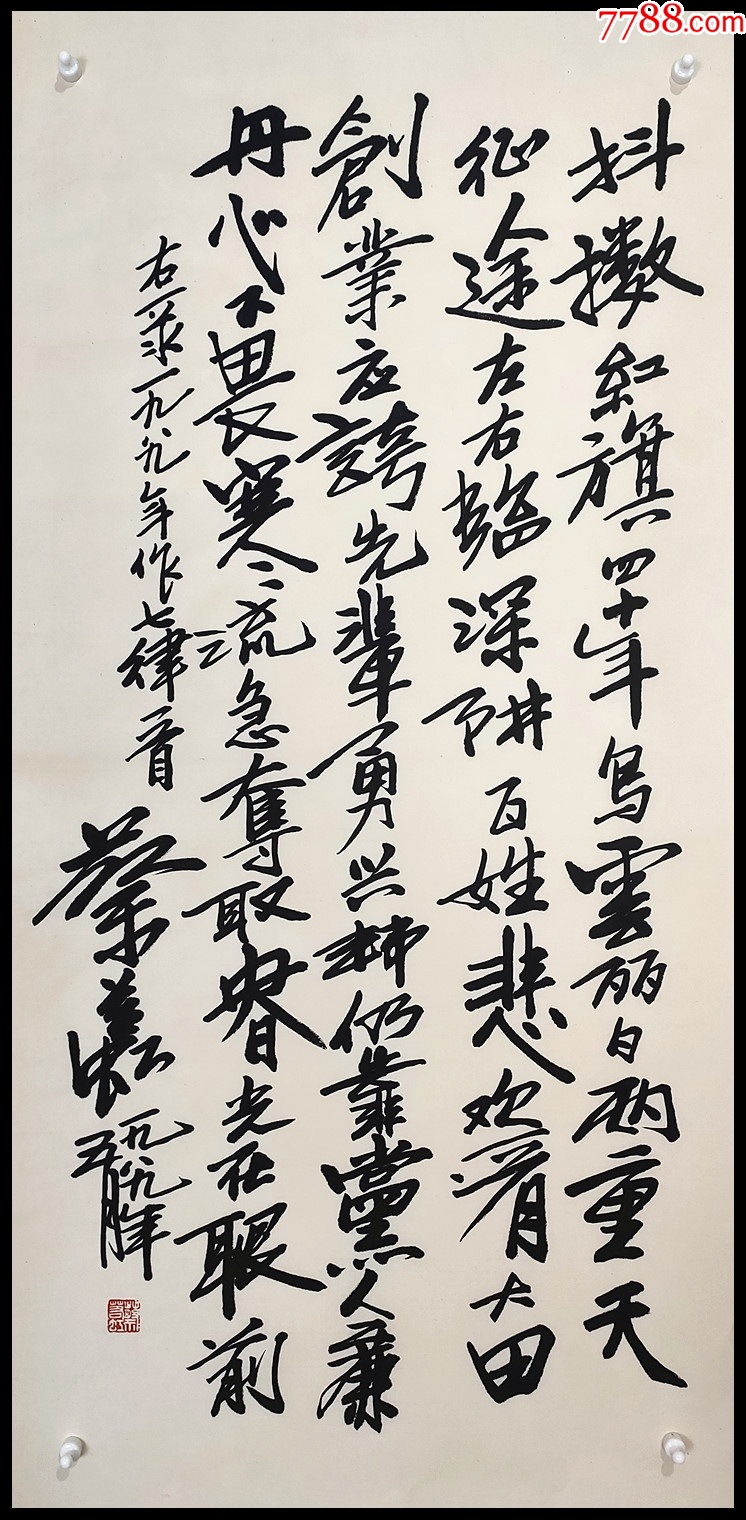 7788.com
抖擞红旗四十年烏雲丽日两重天
征途左右臨深阱百姓悲欢大田
創業应誇先輩勇兴邦仍靠黨人廉
丹心不畏寒流急奪取春光在眼前
右录一九八九年作七律一首
蔡若虹一九八九年
五月